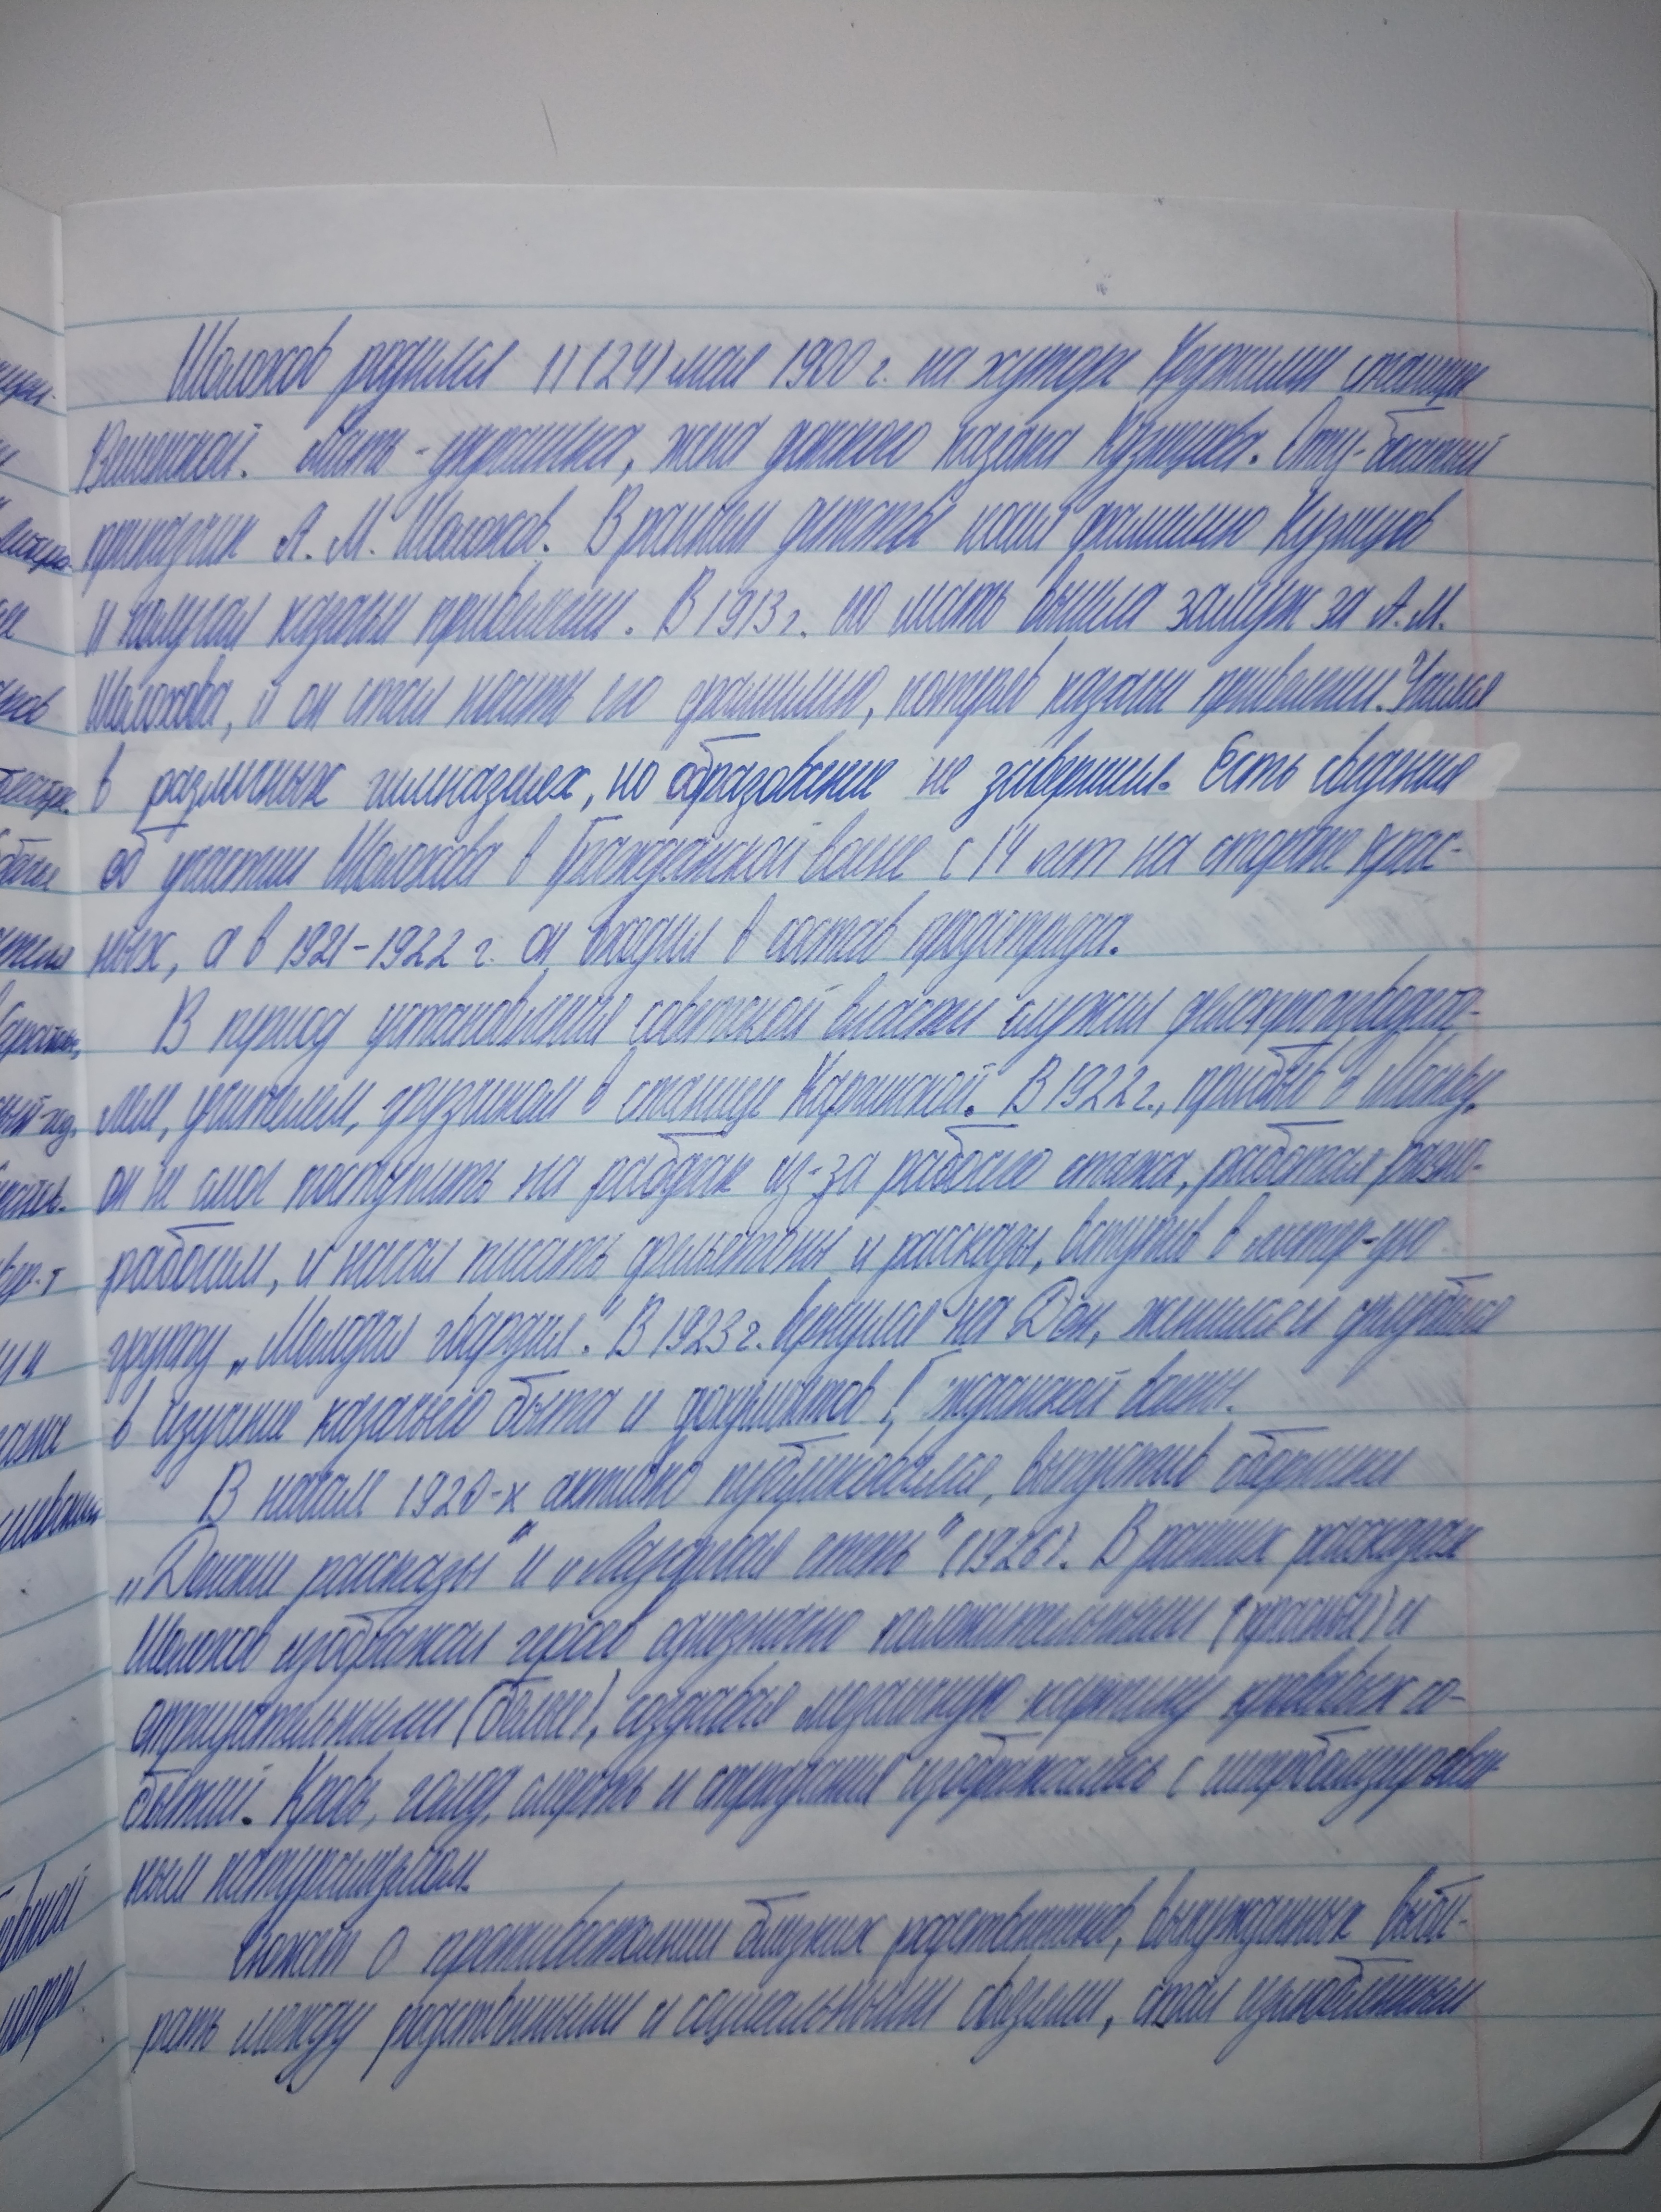 Шолохов родился 11(24) мая 1900 г. на хуторе Кружилин станицы
Вешенской. Мать - украинка, жена донского казака Кузнецова. Отец - богатый
приказчик А. М. Шолохов. В раннем детстве носил фамилию Кузнецов
и получал казачьи привилегии. В 1913 г. его мать вышла замуж за А.М.
Шолохова, и он стал носить его фамилию, потеряв казачьи привилегии. Учился
в различных гимназиях, но образование не завершил. Есть сведения
об участии Шолохова в Гражданской войне с 14 лет на стороне крас-
ных, а в 1921-1922 г. он входил в состав продотряда.
В период установления советской власти служил делопроизводите-
лем, учителем, грузчиком в станице Каргинской. В 1922 г., прибыв в Москву,
он не смог поступить на рабфак из-за рабочего стажа, работал разно-
рабочим, и начал писать фельетоны и рассказы, вступив в литер-ую
группу „Молодая гвардия". В 1923 г. вернулся на Дон, женился и углубился
в изучение казачьего быта и документов Гражданской войны.
В начале 1920-х активно публиковался, выпустив сборники
„Донские рассказы" и „Лазоревая степь" (1926). В ранних рассказах
Шолохов изображал героев однозначно положительными (красные) и
отрицательными (белые), создавая мозаичную картину кровавых со-
бытий. Кровь, голод, смерть и страдания изображались с гиперболизирован-
ным натурализмом.
Сюжет о противостоянии близких родственников, вынужденных выби-
рать между родственными и социальными связями, стал излюбленным